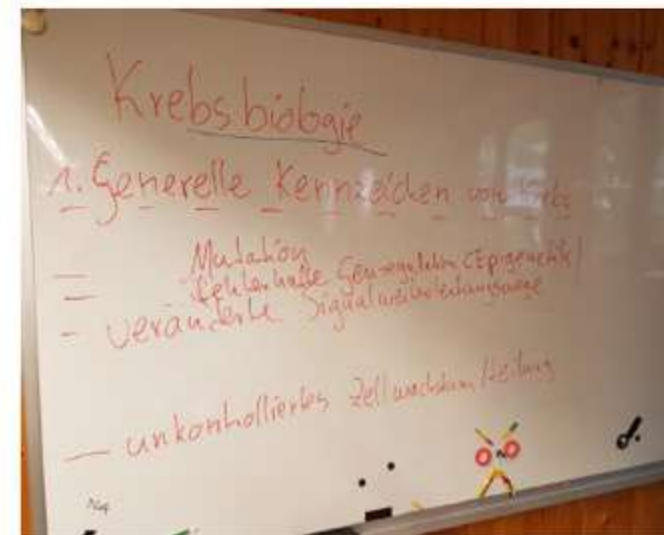 Krebsbiologie
1. Generelle Kennzeichen von Krebs
— Mutation
— fehlerhafte Genregulation (Epigenetik)
- veränderte Signalweiterleitungswege
— unkontrolliertes Zellwachstum/teilung